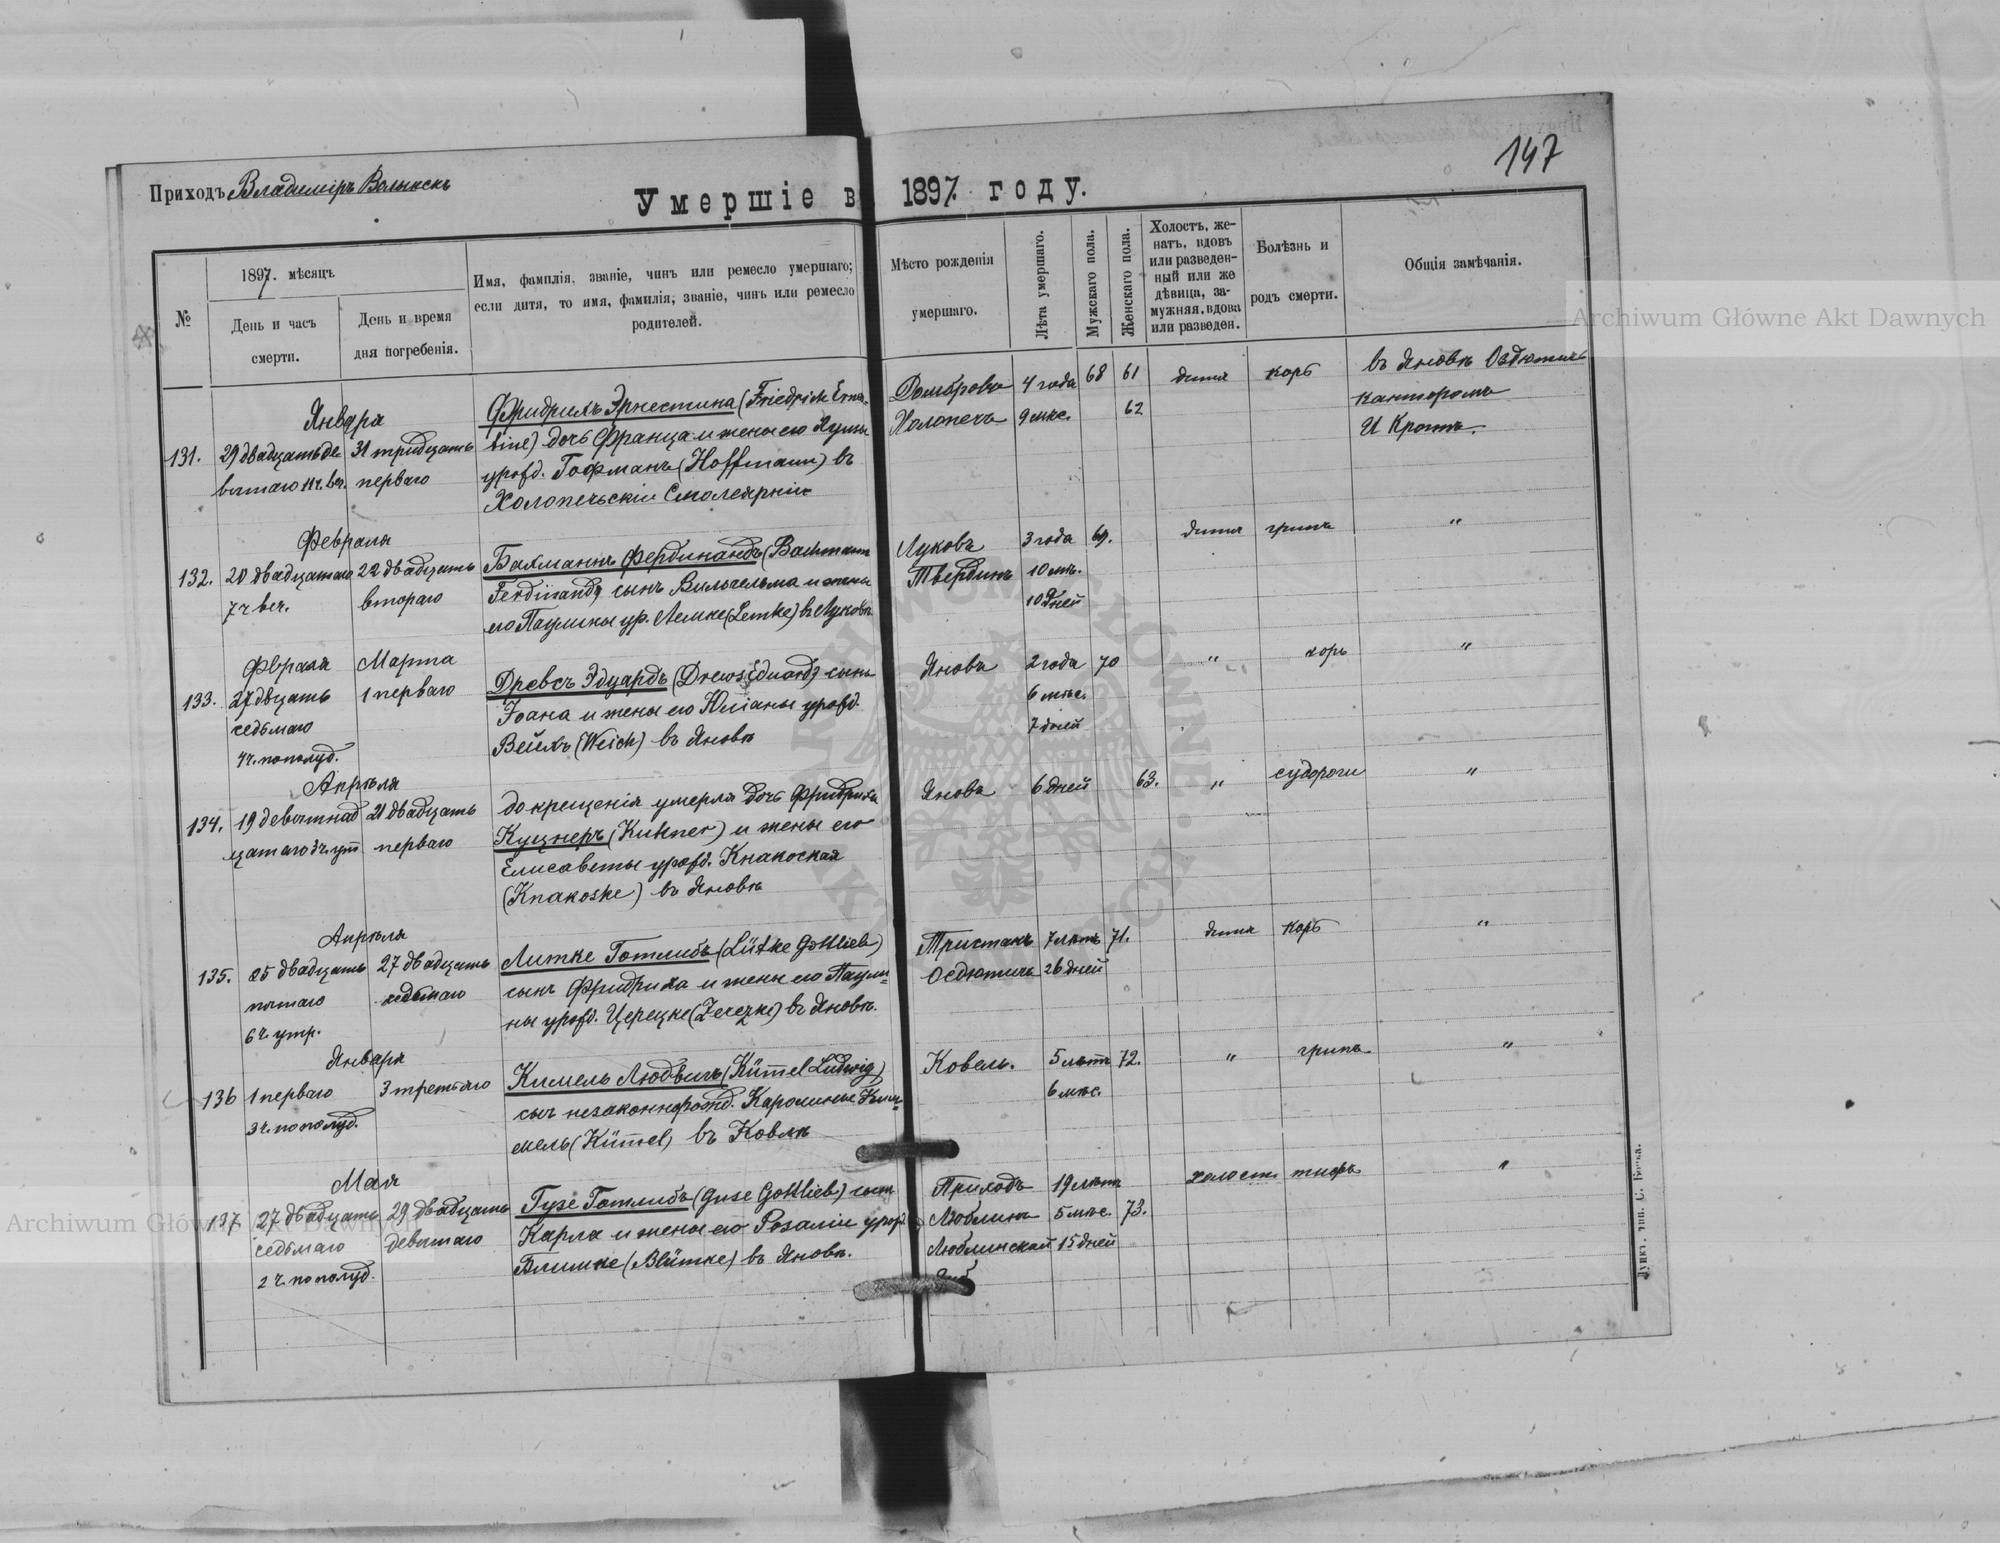 147
Приходъ Владимiръ Волынскъ
Умершіе въ 1897. году.
№
1897. мѣсяцъ
День и часъ смерти.
День и время дня погребенія.
Имя, фамилія, званіе, чинъ или ремесло умершаго;
если дитя, то имя, фамилія, званіе, чинъ или ремесло
родителей.
Мѣсто рожденія
умершаго.
Лѣта умершаго.
Мужскаго пола.
Женскаго пола.
Холостъ, же-
натъ, вдовъ
или разведен-
ный или же
дѣвица, за-
мужняя, вдова
или разведен.
Болѣзнь и
родъ смерти.
Общія замѣчанія.
Января
131. 29 двадцать де 31 тридцать
вятаго 11 ч. веч. перваго
Фридрихъ Эрнестина (Friedrich Ernes-
tine) дочь Франца и жены его
урожд. Гофманъ (Hoffmann) въ
Холопечьскiи Смолеярнiи
Домброва 4 года 68 61 дитя корь въ Яновкѣ
Холопечъ 9 мѣс. 62 канторомъ
И Кротъ.
Февраля
132. 20 двадцатаго 22 двадцать
7 ч веч. втораго
Бахманъ Фердинандъ (Bachmann
Ferdinand) сынъ Вильгельма и жены
его Паулины ур. Лемке (Lemke) въ Луковѣ
Луковъ 3 года 69. дитя грипъ "
Твердинъ 10 мѣс.
10 дней
Февраля Марта
133. 27 двцать 1 перваго
седьмаго
4 ч. пополуд.
Древсъ Эдуардъ (Drews Eduard) сынъ
Іоана и жены его Юліаны урожд.
Вейхъ (Weich) въ Яновкѣ
Янова 2 года 70 " корь "
6 мѣс.
7 дней
Апрѣля
134. 19 девятнад 21 двадцать
цатаго 3 ч. ут перваго
до крещенія умерла дочь Фридриха
Куцнеръ (Kutzner) и жены его
Елисаветы урожд. Кнакоская
(Knakoske) въ Яновкѣ
Янова 6 дней 63. " судороги "
Апрѣля
135. 25 двадцать 27 двадцать
пятаго седьмаго
6 ч. утр.
Литке Готлибъ (Lütke Gottlieb)
сынъ Фридриха и жены его Паули-
ны урожд. Церецке (Zerezke) въ Яновкѣ.
Тристакъ 7 лѣтъ 71. дитя корь "
Осдютичъ 26 дней
Января
136 1 перваго 3 третьяго
3 ч. пополуд.
Кимель Людвигъ (Kümel Ludwig)
сын незаконнорожд. Каролины Ким-
мель (Kümel) въ Ковлѣ
Ковель. 5 лѣтъ 72. " грипъ "
6 мѣс.
Мая
137 27 двадцать 29 двадцать
седьмаго девятаго
2 ч. пополуд.
Гузе Готлибъ (Guse Gottlieb) сынъ
Карла и жены его Розаліи урож.
Блимке (Blümke) въ Яновкѣ.
Приходъ 19 лѣтъ холостъ тифъ "
Люблинъ 5 мѣс. 73.
Люблинской 15 дней
Губ
Archiwum Główne Akt Dawnych
Archiwum Główne Akt Dawnych